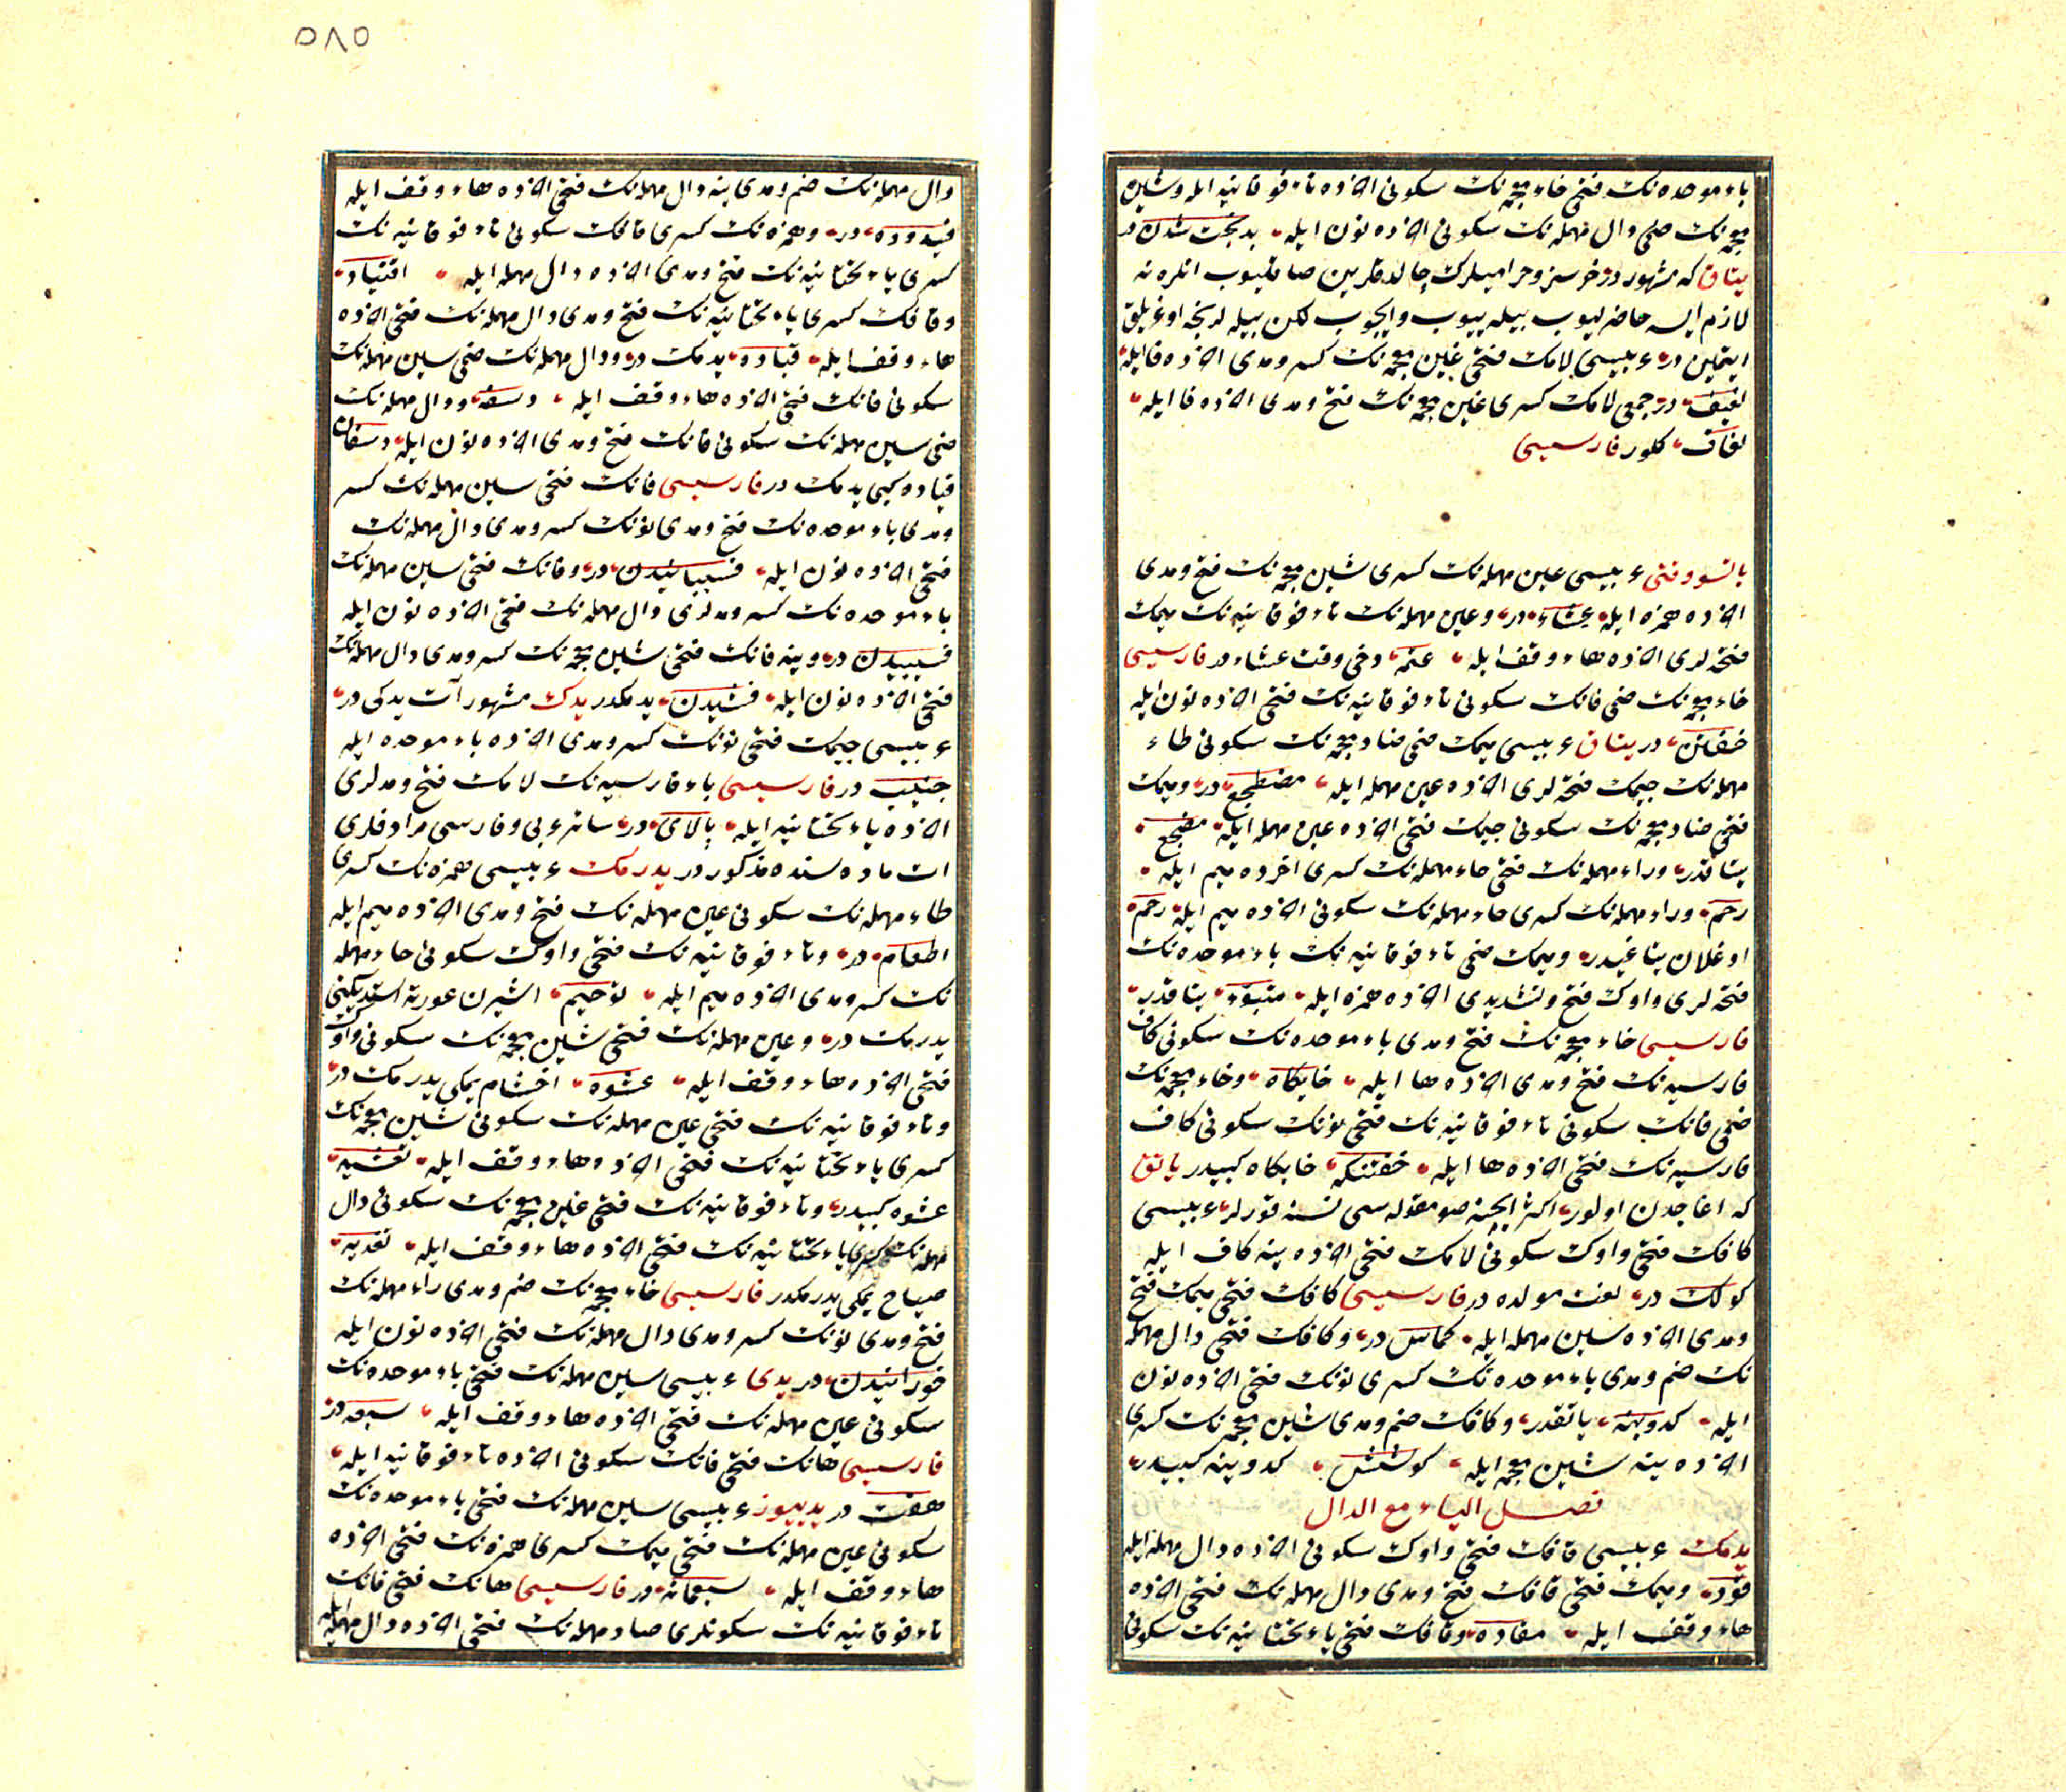 باء موحده نك فتحى خاء معجمه نك سكونى اخرده تاء فوقانيه ايله وشين
معجمه نك ضمى دال مهمله نك سكونى اخرده نون ايله بدبخت شدن در
يتاق كه مشهور در خرسز وحراميلرك چالدقلرين صاقليوب انلره نه
لازم ايسه حاضرليوب بيله ييوب وايچوب لكن بيله لرنجه اوغريلق
ايتمين در عربيسى لامك فتحى غين معجمه نك كسر ومدى اخرده فا ايله
لغيف در جمعى لامك كسرى غين معجمه نك فتح ومدى اخرده فا ايله
لغاف كلور فارسيسى
ياتسو وقتى عربيسى عين مهمله نك كسرى شين معجمه نك فتح ومدى
اخرده همزه ايله عشاء در وعين مهمله نك تاء فوقانيه نك ميمك
فتحه لرى اخرده هاء وقف ايله عتمه دخى وقت عشاء در فارسيسى
خاء معجمه نك ضمى فانك سكونى تاء فوقانيه نك فتحى اخرده نون ايله
خفتن در يتاق عربيسى ميمك ضمى ضاد معجمه نك سكونى طاء
مهمله نك جيمك فتحه لرى اخرده عين مهمله ايله مضطجع در وميمك
فتحى ضاد معجمه نك سكونى جيمك فتحى اخرده عين مهمله ايله مضجع
يتاقدر وراء مهمله نك فتحى حاء مهمله نك كسرى اخرده ميم ايله
رحم وراء مهمله نك كسرى حاء مهمله نك سكونى اخرده ميم ايله رحم
اوغلان يتاغيدر وميمك ضمى تاء فوقانيه نك باء موحده نك
فتحه لرى واوك فتح وتشديدى اخرده همزه ايله متبوّء يتاقدر
فارسيسى خاء معجمه نك فتح ومدى باء موحده نك سكونى كاف
فارسيه نك فتح ومدى اخرده ها ايله خابكاه وخاء معجمه نك
ضمى فانك سكونى تاء فوقانيه نك فتحى نونك سكونى كاف
فارسيه نك فتحى اخرده ها ايله خفتنكه خابكاه كبيدر ياتق
كه اغاجدن اولور اكثر ايچنه صو مقوله سى نسنه قورلر عربيسى
كافك فتحى واوك سكونى لامك فتحى اخرده ينه كاف ايله
كولك در لغت مولده در فارسيسى كافك فتحى ميمك فتح
ومدى اخرده سين مهمله ايله كماس در وكافك فتحى دال مهمله
نك ضم ومدى باء موحده نك كسرى نونك فتحى اخرده نون
ايله كدوبنه ياتقدر وكافك ضم ومدى شين معجمه نك كسرى
اخرده ينه شين معجمه ايله كوشش كدوينه كبيدر
فصل الياء مع الدال
يدمك عربيسى قافك فتحى واوك سكونى اخرده دال مهمله ايله
قود وميمك فتحى قافك فتح ومدى دال مهمله نك فتحى اخرده
هاء وقف ايله مقاده وقافك فتحى ياء تحتانيه نك سكونى
٥٨٥
دال مهمله نك ضم ومدى ينه دال مهمله نك فتحى اخرده هاء وقف ايله
قيدوده در وهمزه نك كسرى قافك سكونى تاء فوقانيه نك
كسرى ياء تحتانيه نك فتح ومدى اخرده دال مهمله ايله اقتياد
وقافك كسرى ياء تحتانيه نك فتح ومدى دال مهمله نك فتحى اخرده
هاء وقف ايله قياده يدمك در ودال مهمله نك ضمى سين مهمله نك
سكونى فانك فتحى اخرده هاء وقف ايله دسفه ودال مهمله نك
ضمى سين مهمله نك سكونى فانك فتح ومدى اخرده نون ايله دسفان
قياده كبى يدمك در فارسيسى فانك فتحى سين مهمله نك كسر
ومدى باء موحده نك فتح ومدى نونك كسر ومدى دال مهمله نك
فتحى اخرده نون ايله فسيبانيدن در وفانك فتحى سين مهمله نك
باء موحده نك كسر ومدلرى دال مهمله نك فتحى اخرده نون ايله
فسيبيدن در وينه فانك فتحى شين معجمه نك كسر ومدى دال مهمله نك
فتحى اخرده نون ايله فشيدن يدمكدر يدك مشهور آت يدكى در
عربيسى جيمك فتحى نونك كسر ومدى اخرده باء موحده ايله
جنيب در فارسيسى باء فارسيه نك لامك فتح ومدلرى
اخرده ياء تحتانيه ايله پالاى در سائر عربى وفارسى مرادفلرى
ات ماده سنده مذكور در يدرمك عربيسى همزه نك كسرى
طاء مهمله نك سكونى عين مهمله نك فتح ومدى اخرده ميم ايله
اطعام در وتاء فوقانيه نك فتحى واوك سكونى حاء مهمله
نك كسر ومدى اخرده ميم ايله توحيم اشيرن عورته استديكنى
يدرمك در وعين مهمله نك فتحى شين معجمه نك سكونى واوك
فتحى اخرده هاء وقف ايله عشوه اخشام يمكى يدرمك در
وتاء فوقانيه نك فتحى عين مهمله نك سكونى شين معجمه نك
كسرى ياء تحتانيه نك فتحى اخرده هاء وقف ايله تعشيه
عشوه كبيدر وتاء فوقانيه نك فتحى غين معجمه نك سكونى دال
مهمله نك كسرى ياء تحتانيه نك فتحى اخرده هاء وقف ايله تغديه
صباح يمكى يدرمكدر فارسيسى خاء معجمه نك ضم ومدى راء مهمله نك
فتح ومدى نونك كسر ومدى دال مهمله نك فتحى اخرده نون ايله
خورانيدن در يدى عربيسى سين مهمله نك فتحى باء موحده نك
سكونى عين مهمله نك فتحى اخرده هاء وقف ايله سبعه در
فارسيسى هانك فتحى فانك سكونى اخرده تاء فوقانيه ايله
هفت در يدييوز عربيسى سين مهمله نك فتحى باء موحده نك
سكونى عين مهمله نك فتحى ميمك كسرى همزه نك فتحى اخرده
هاء وقف ايله سبعمائه در فارسيسى هانك فتحى فانك
تاء فوقانيه نك سكونلرى صاد مهمله نك فتحى اخرده دال مهمله ايله